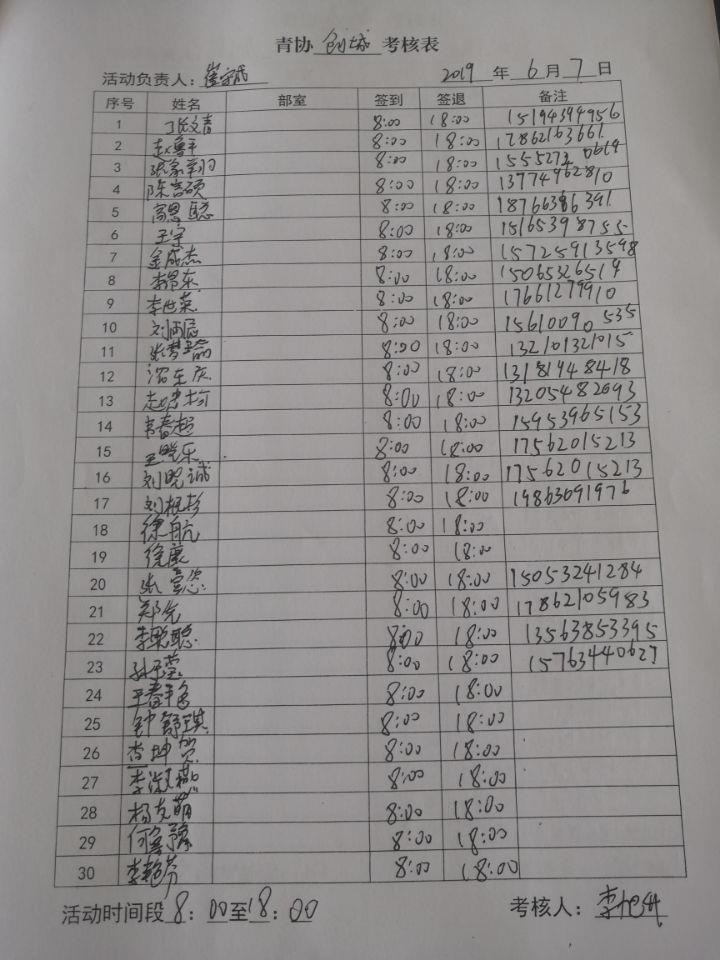 青协 创城 考核表
活动负责人: 2019 年 6 月 7 日
序号 姓名 部室 签到 签退 备注
1 文青 8:00 18:00 15194394956
2 赵鲁平 8:00 18:00 17862163661
3 张家翔 8:00 18:00 1555273 0619
4 陈言硕 8:00 18:00 13774962810
5 高恩聪 8:00 18:00 18766386391
6 王宇 8:00 18:00 15165398755
7 金成杰 8:00 18:00 15725913598
8 李昂东 8:00 18:00 15065326519
9 李世荣 8:00 18:00 17661279910
10 刘炳辰 8:00 18:00 15610090535
11 张梦 8:00 18:00 132101321015
12 8:00 18:00 13181948418
13 赵 8:00 18:00 13205482693
14 韦春超 8:00 18:00 15953965153
15 王晓乐 8:00 18:00 17562015213
16 刘晓诚 8:00 18:00 17562015213
17 刘根杉 8:00 18:00 19863091976
18 徐航 8:00 18:00
19 徐康 8:00 18:00
20 张 8:00 18:00 15053241284
21 郑先 8:00 18:00 17862105983
22 李聪聪 8:00 18:00 13563853395
23 孙玉莹 8:00 18:00 15763440627
24 王春 8:00 18:00
25 钟舒琪 8:00 18:00
26 李坤贺 8:00 18:00
27 李淑燕 8:00 18:00
28 杨友萌 8:00 18:00
29 何 8:00 18:00
30 李艳芬 8:00 18:00
活动时间段 8:00至18:00 考核人: 李旭